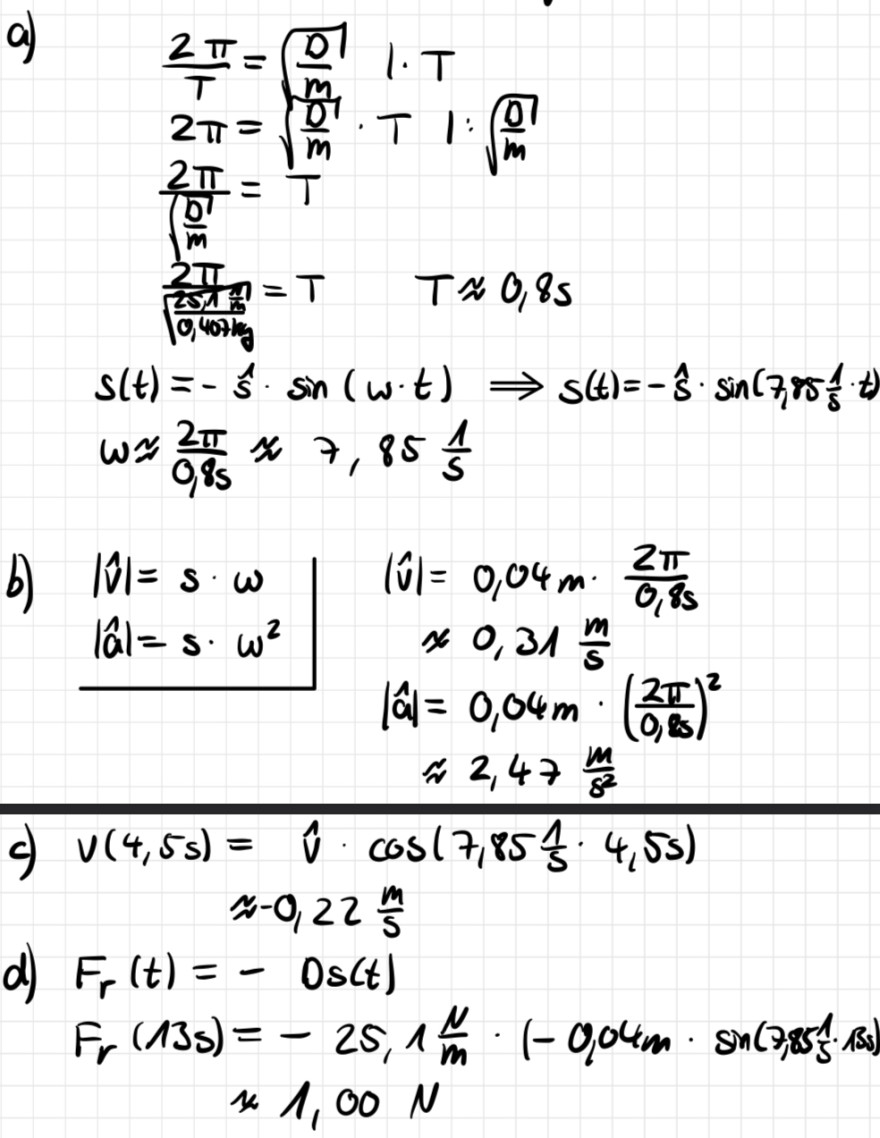 a)
2π/T = √(D/m) | · T
2π = √(D/m) · T | : √(D/m)
2π/√(D/m) = T
2π/√(25,1 N/m / 0,407kg) = T T ≈ 0,8s
s(t) = - ŝ · sin (ω · t) ⟹ s(t) = - ŝ · sin(7,85 1/s · t)
ω ≈ 2π/0,8s ≈ 7,85 1/s
b) |v̂| = s · ω
|â| = s · ω²
|v̂| = 0,04m · 2π/0,8s
≈ 0,31 m/s
|â| = 0,04m · (2π/0,8s)²
≈ 2,47 m/s²
c) v(4,5s) = v̂ · cos(7,85 1/s · 4,5s)
≈ -0,22 m/s
d) Fr (t) = - Ds(t)
Fr (13s) = - 25,1 N/m · (- 0,04m · sin(7,85 1/s · 13s)
≈ 1,00 N